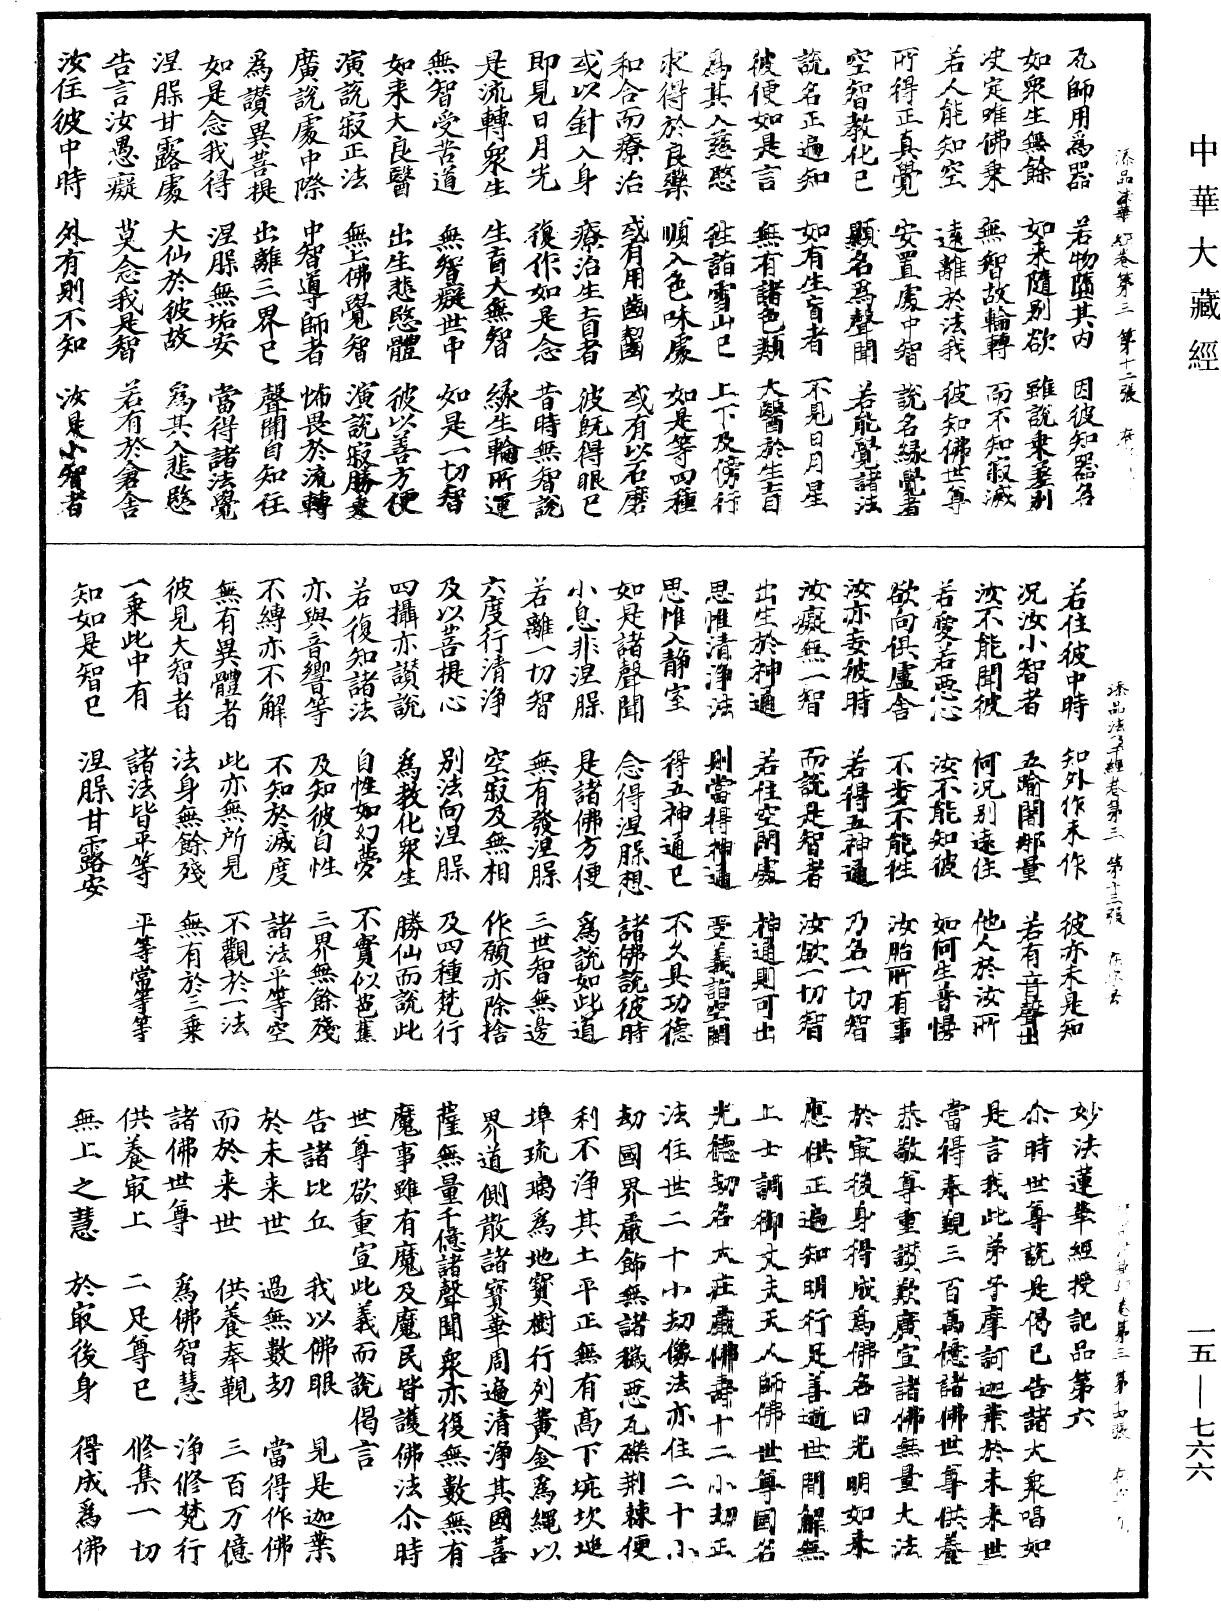 中華大藏經
添品法華經卷第三 第十二張
瓦師用爲器 若物隨其内 因彼知器名
如衆生無餘 如来隨別欲 雖說乗差別
决定唯佛乗 無智故輪轉 而不知寂滅
若人能知空 遠離於法我 彼知佛世尊
所得正真覺 安置處中智 說名緣覺者
空智教化已 顯名爲聲聞 若能覺諸法
說名正遍知 如有生盲者 不見日月星
彼便如是言 無有諸色類 大醫於生盲
爲其入慈愍 往詣雪山已 上下及傍行
求得於良藥 順入色味處 如是等四種
和合而療治 或有用齒齧 或有以石磨
或以針入身 療治生盲者 彼既得眼已
即見日月光 復作如是念 昔時無智說
是流轉衆生 生盲大無智 緣生輪所運
無智受苦道 無智癡世中 如是一切智
如来大良醫 出生悲愍體 彼以善方便
演說寂正法 無上佛覺智 演說寂勝乗
廣說處中際 中智導師者 怖畏於流轉
爲讃異菩提 出離三界已 聲聞自知住
如是念我得 涅槃無垢安 當得諸法覺
涅槃甘露處 大仙於彼故 爲其入悲愍
告言汝愚癡 莫念我是智 若有於倉舎
汝住彼中時 外有則不知 汝是小智者
添品法華經卷第三 第十三張
若住彼中時 知外作未作 彼亦未是知
况汝小智者 五踰闍那量 若有音聲出
汝不能聞彼 何况別遠住 他人於汝所
若愛若惡心 汝不能知彼 如何生普慢
欲向俱盧舎 不步不能往 汝胎所有事
汝亦妄彼時 若得五神通 乃名一切智
汝癡無一智 而說是智者 汝欲一切智
出生於神通 若住空閑處 神通則可出
思惟清浄法 則當得神通 受義詣空閑
思惟入静室 得五神通已 不久具功德
如是諸聲聞 念得涅槃想 諸佛說彼時
小息非涅槃 是諸佛方便 爲說如此道
若離一切智 無有發涅槃 三世智無邊
六度行清浄 空寂及無相 作願亦除捨
及以菩提心 別法向涅槃 及四種梵行
四攝亦讃說 爲教化衆生 勝仙而說此
若復知諸法 自性如幻夢 不實似芭蕉
亦與音響等 及知彼自性 三界無餘殘
不縛亦不解 不知於滅度 諸法平等空
無有異體者 此亦無所見 不觀於一法
彼見大智者 法身無餘殘 無有於三乗
一乗此中有 諸法皆平等 平等當等等
知如是智已 涅槃甘露安
妙法蓮華經授記品第六
尒時世尊說是偈已告諸大衆唱如
是言我此弟子摩訶迦葉於未来世
當得奉覲三百萬億諸佛世尊供養
恭敬尊重讃歎廣宣諸佛無量大法
於㝡後身得成爲佛名曰光明如来
應供正遍知明行足善逝世間解無
上士調御丈夫天人師佛世尊國名
光德劫名大莊嚴佛壽十二小劫正
法住世二十小劫像法亦住二十小
劫國界嚴飾無諸穢惡瓦礫荆棘便
利不淨其土平正無有高下坑坎堆
埠琉璃爲地寶樹行列黄金爲繩以
界道側散諸寶華周遍清淨其國菩
薩無量千億諸聲聞衆亦復無數無有
魔事雖有魔及魔民皆護佛法尒時
世尊欲重宣此義而說偈言
告諸比丘 我以佛眼 見是迦葉
於未来世 過無數劫 當得作佛
而於来世 供養奉覲 三百万億
諸佛世尊 爲佛智慧 淨修梵行
供養㝡上 二足尊已 修集一切
無上之慧 於㝡後身 得成爲佛
一五—七六六